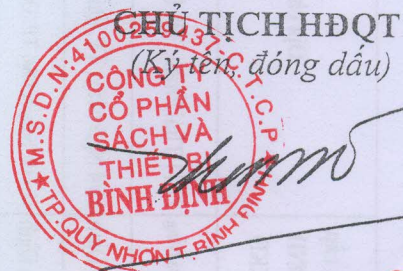 CHỦ TỊCH HĐQT
(Ký tên, đóng dấu)
M.S.D.N: 4100259437-C.T.C.P
CÔNG TY
CỔ PHẦN
SÁCH VÀ
THIẾT BỊ
BÌNH ĐỊNH
TP.QUY NHƠN T.BÌNH ĐỊNH